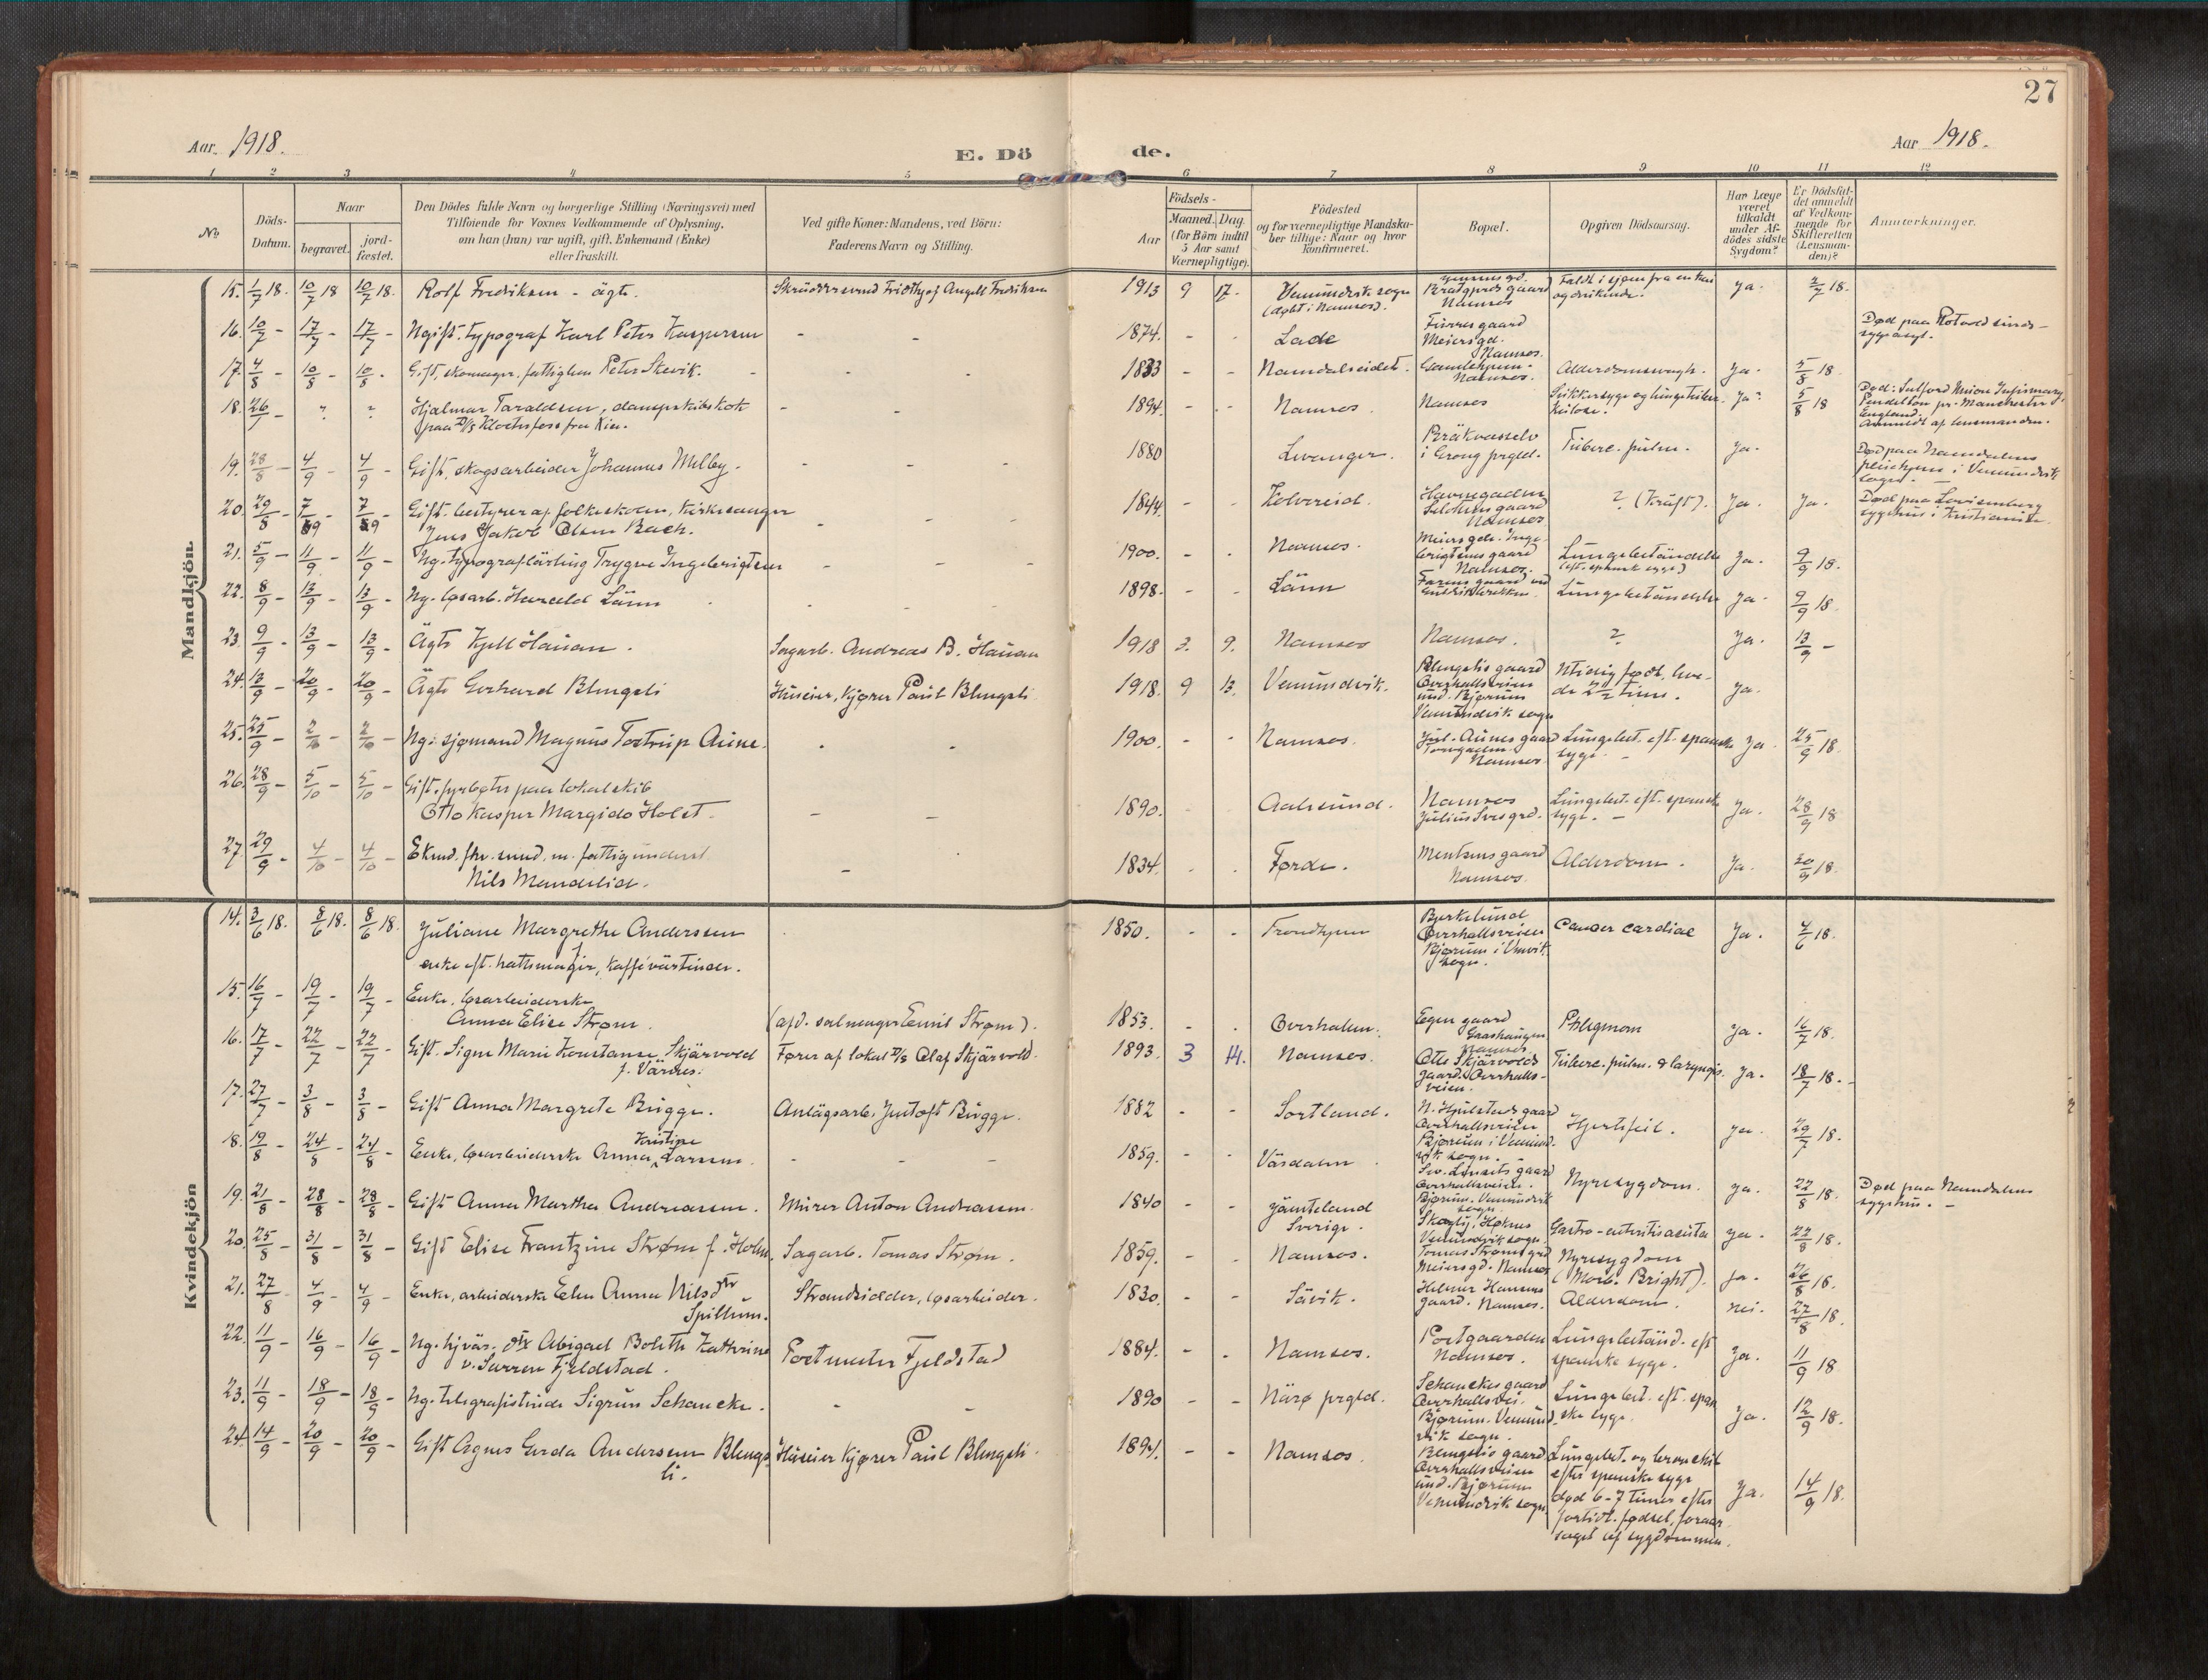 27
Aar 1918.
E. Dö de.
Aar 1918.
1 2 3 4 5 6 7 8 9 10 11 12
No
Döds-Datum.
Naar
begravet.
jord-fæstet.
Den Dödes fulde Navn og borgerlige Stilling (Næringsvei) med
Tilföiende for Voxnes Vedkommende af Oplysning,
om han (hun) var ugift, gift, Enkemand (Enke)
eller fraskilt.
Ved gifte Koner: Mandens, ved Börn:
Faderens Navn og Stilling.
Födsels-
Aar
Maaned.
Dag.
(for Börn indtil
5 Aar samt
Værnepligtige).
Födested
og for værnepligtige Mandska-
ber tillige: Naar og hvor
konfirmeret.
Bopæl.
Opgiven Dödsaarsag.
Har Læge
været
tilkaldt
under Af-
dödes sidste
Sygdom?
Er Dödsfal-
det anmeldt
af Vedkom-
mende for
Skifteretten
(Lensman-
den)?
Anmærkninger.
Mandkjön.
15. 1/7 18. 10/7 18 10/7 18. Rolf Fredriksen - ägte. 1913 9 17. Namsos Faldt i sjøen fra en kai Ja. 2/7 18.
(døbt i Namsos).
16. 10/7 - 17/7 - 17/7 - Ugift. typograf Karl Peter Kaspersen - - 1874. - - Lade Meiersgd. Namsos. Død paa Rotvold sinds-
sygeasyl.
17. 4/8 - 10/8 - 10/8 - Gift, skomager, fattiglem Peter Skevik. - - 1833 - - Namdalseidet. Gamlehjem. Namsos. Alderdomssvagh. Ja. 5/8 18.
18. 26/ - ? ? Hjalmar Taraldsen, dampskibskok - - 1894. - - Namsos. Namsos Ja? 5/8 18 Død: Salford Union Infirmary,
paa D/S Klosterfoss fra Kr.a. Pendelton pr. Manchester
England.
Anmeldt af lensmanden.
19. 28/8 - 4/9 - 4/9 - Gift, skogsarbeider Johannes Melby. - - 1880 Levanger. i Grong prgld. Tuberc. pulm. Ja. Død paa Namdalens
pleiehjem i Vemundvik
sogn.
20. 29/8 - 7/9 - 7/9 - Gift. bestyrer af folkeskolen, kirkesanger 1844. - - Kolvereid. Havnegaden Namsos ? (Kräft). Ja. Ja. Død paa Lovisenberg
Jens Jakob Olsen Bach. - - sygehus i Kristiania.
21. 5/9 - 11/9 - 11/9 - Ug. typograflärling Trygve Ingebrigtsen - - 1900. - - Namsos. Meiersgdn. Inge-
brigtsens gaard Namsos. Lungebetändelse (eft. spansk syge) Ja. 9/9 18.
22. 8/9 - 13/9 - 13/9 - Ug. løsarb. Harald Läum - - 1898. - - Läum Lungebetändelse Ja. 9/9 18.
23. 9/9 - 13/9 - 13/9 - Ägte Kjell Hauan. Sagarb. Andreas B. Hauan 1918 3. 9. Namsos Namsos. ? Ja. 13/9 -
24. 13/9 - 20/9 - 20/9 - Ägte Gerhard Blengsli Huseier, kjører Paul Blengsli 1918. 9 13. Vemundvik. Blengslis gaard
Overhallsveien
und. Bjørum
Vemundvik sogn Utidig født, leve-
de 2 1/2 time. Ja.
25. 25/9 - 2/10 - 2/10 - Ug. sjømand Magnus Tostrup Aune. - - 1900. - - Namsos. Jul. Aunes gaard Namsos Lungebet. eft. spanske syge. Ja 25/9 18.
26. 28/9 - 5/10 - 5/10 - Gift. fyrbøter paa lokalskib
Otto Kasper Margido Holst. - - 1890. Aalesund. Namsos Lungebet. eft. spansk syge. Ja. 28/9 18
27. 29/9 - 4/10 - 4/10 - Ekmd. fhv. smed. m. fattigunderst.
Nils Mandelid. - 1834. - - Førde. Mentzens gaard Namsos. Alderdom. Ja. 30/9 18.
Kvindekjön
14. 3/6 18. 8/6 18. 8/6 18. Juliane Margrethe Anderssen 1850. - - Trondhjem Bjerkelund
Overhallsveien
Bjørum i Vemvik
sogn. Cancer cardiae Ja. 4/6 18.
enke eft. hattemager, kaffevärtinde.
15. 16/7 - 19/7 - 19/7 - Enke, løsarbeiderske
Anna Elise Strøm. (afd. salmager Emil Strøm). 1853. - - Overhalla. Egen gaard Namsos Phlegmon Ja. 16/7 18.
16. 17/7 - 22/7 - 22/7 - Gift. Signe Marie Konstanse Skjärvold Fører af lokal D/S Olaf Skjärvold. 1893. 3 14. Namsos. Otto Skjärvolds
gaard. Overhalls-
veien. Tuberc. pulm. & laryngis. Ja. 18/7 18.
f. Värnes.
17. 27/7 - 3/8 - 3/8 - Gift Anna Margrete Bugge. Anlägsarb. Justoft Bugge. 1882 - - Sortland. Overhallsveien
Bjørum i Vemund-
vik sogn. Hjertefeil. ja. 29/7 18.
18. 19/8 - 24/8 - 24/8 - Enke, løsarbeiderske Anna Kristine Larsen. - - 1859. - - Värdalen Overhallsveien.
Bjørum. Vemundvik
sogn. Nyresygdom. ja. 22/8 18.
19. 21/8 - 28/8 - 28/8 - Gift Anna Martha Andreassen. Murer Anton Andreassen. 1840 - - Jämteland
Sverige. Vemundvik sogn. Gastro-enteritis acuta ja. 22/8 18. Død paa Namdalens
sygehus.
20. 25/8 - 31/8 - 31/8 - Gift Elise Frantzine Strøm f. Holm Sagarb. Tomas Strøm. 1859. - - Namsos. Tomas Strøms grd
Meiersgd. Namsos Nyresygdom
(Morb. Bright). Ja. 26/8 18.
21. 27/8 - 4/9 - 4/9 - Enke, arbeiderske Elen Anna Nilsdtr
Spillum. Strandsidder, løsarbeider. 1830. - - Sävik. Helmer Hansens
gaard. Namsos. Alderdom. nei. 27/8 18.
22. 11/9 - 16/9 - 16/9 - Ug. hjvär. dtr Abigael Bolette Kathrine
v. Surren Fjeldstad. Postmester Fjeldstad 1884. - - Namsos. Postgaarden
Namsos. Lungebetänd. eft
spanske syge. Ja. 11/9 18
23. 11/9 - 18/9 - 18/9 - Ug. telegrafistinde Sigrun Schancke. - - 1890 - - Närø prgld. Schanckes gaard
Overhallsvei.
Bjørum. Vemund-
vik sogn. Lungebet. eft. span
ske syge. Ja. 12/9 18.
24. 14/9 - 20/9 - 20/9 - Gift Agnes Gerda Andersen Blengs-
li. Huseier Kjører Paul Blengsli. 1894. - - Namsos Blengslis gaard
Overhallsveien
und. Bjørum
Vemundvik sogn. Lungebet. og bronchit
efter spanske syge
død 6-7 timer efter
fortidl. fødsel, foraar-
saget af sygdommen. Ja. 14/9 18.